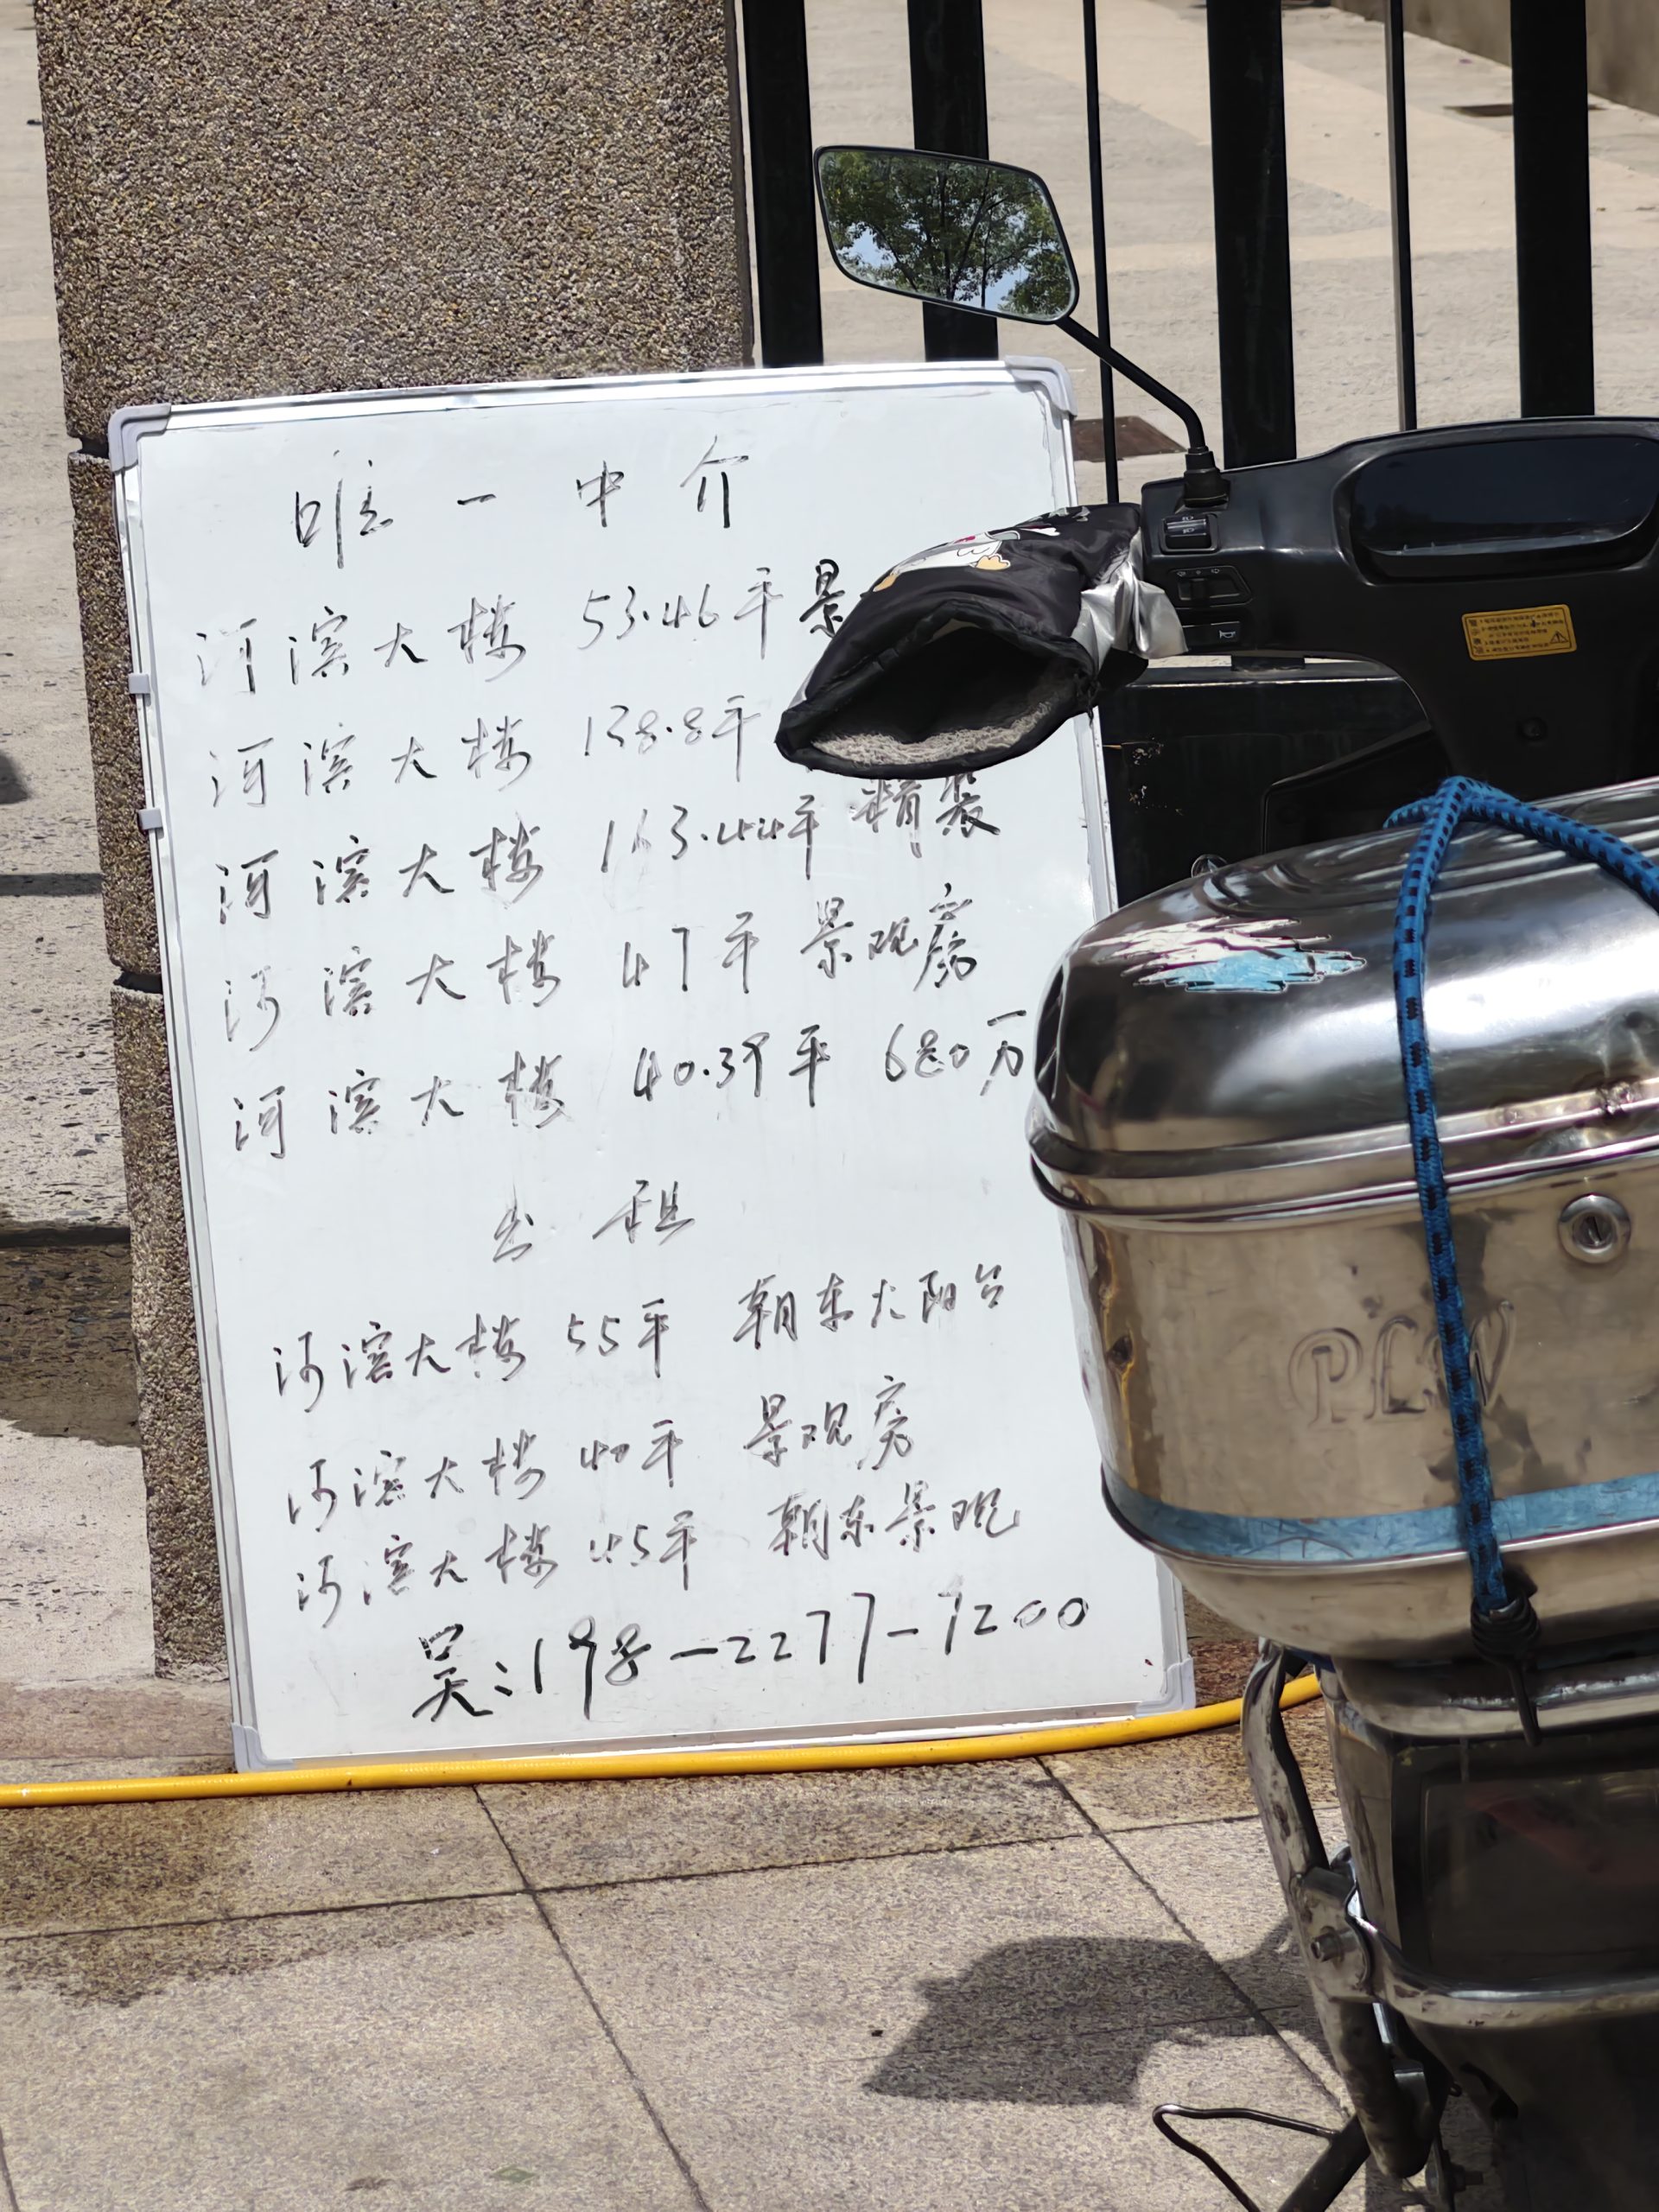 唯一中介
河滨大楼 53.46平 景
河滨大楼 138.8平
河滨大楼 163.44平 精装
河滨大楼 47平 景观房
河滨大楼 40.39平 680万
出租
河滨大楼 55平 朝东大阳台
河滨大楼 40平 景观房
河滨大楼 45平 朝东景观
吴:198-2277-7200